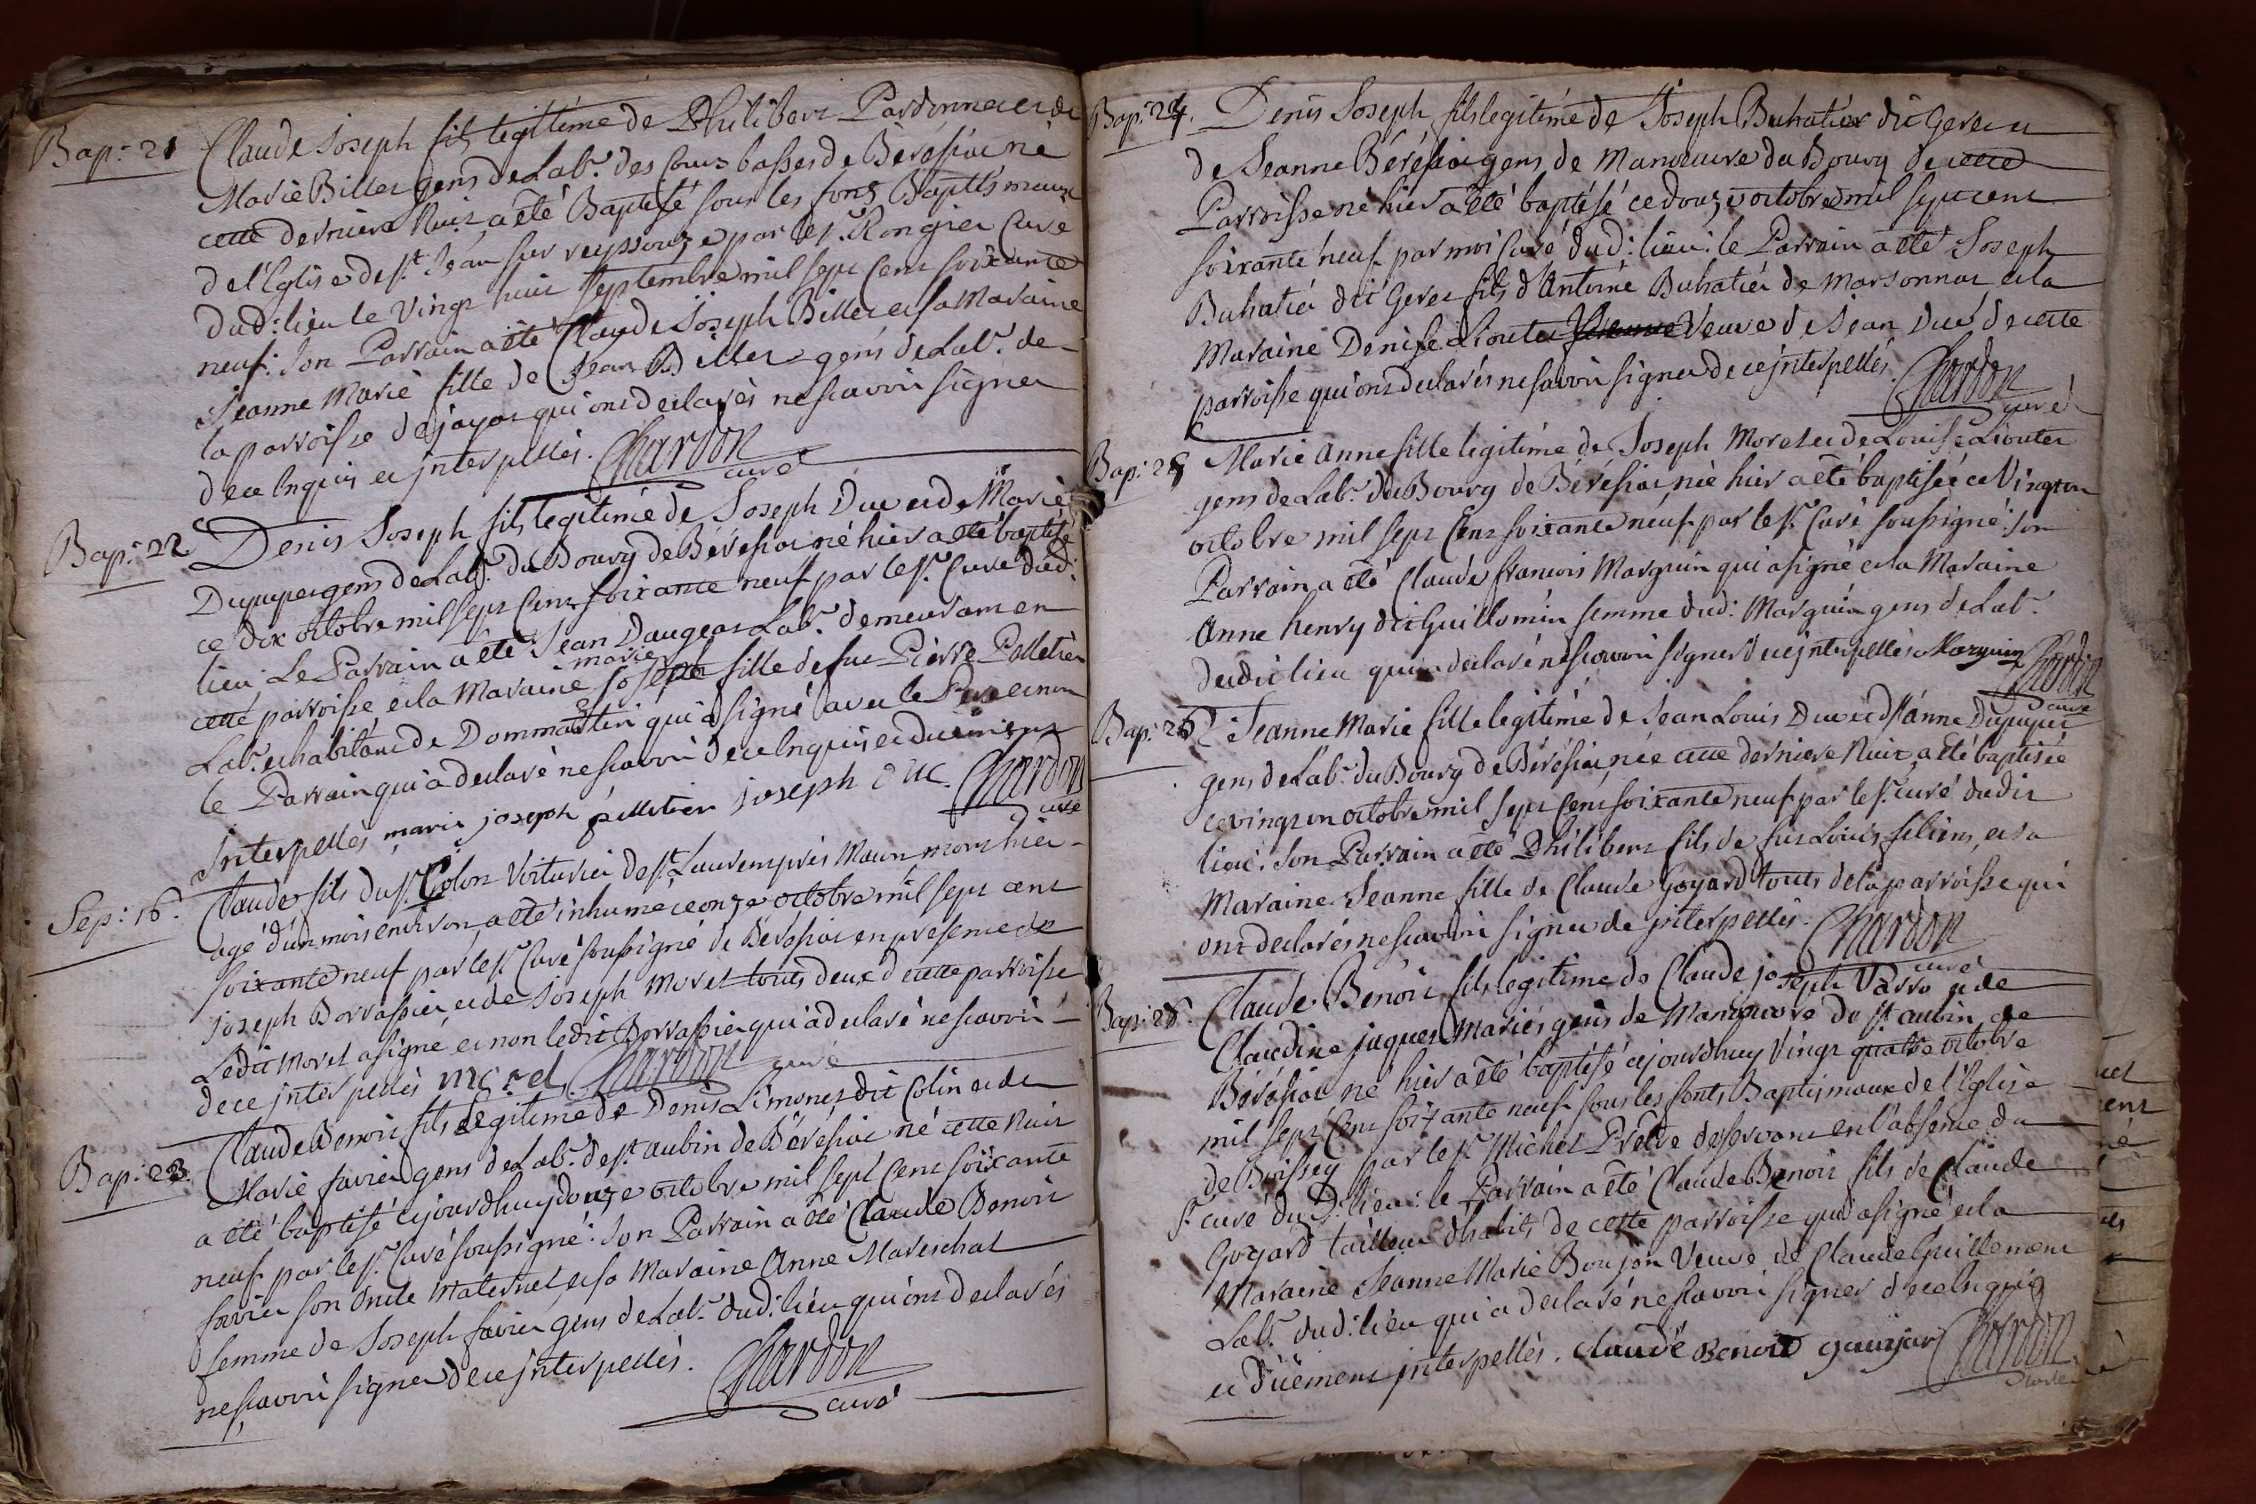 Bap: 21 Claude Joseph fils legitime de Philibert Pardonnet et de
Marie Billet gens de Lab.r des Cours basses de Béréssiat né
cette derniere Nuit a été Baptisé sous les fons Baptismaux
de l'Eglise de s.t Jean sur reyssouze par le s.r Rongier Curé
dud: lieu le Vingt huit septembre mil sept cent soixante
neuf: son Parrain a été Claude Joseph Billet et sa Maraine
Jeanne Marie fille de Jean Billet gens de Lab.r de
la parroisse de jayat qui ont declarés ne scavoir signer
de ce Enquis et interpellés. Chardon
curé
Bap: 22 Denis Joseph fils legitime de Joseph Duc et de Marie
Dupupet gens de Lab.r du Bourg de Béréssiat né hier a été baptisé
ce dix octobre mil sept cent soixante neuf par le s.r Curé dud:
lieu Le Parrain a été Jean Daugeat Lab.r demeurant en
marie
cette parroisse et la Maraine joseph fille de fut Pierre Pelletier
Lab.r et habitant de Dommartin qui a signé avec le Pere et non
le Parrain qui a declaré ne scavoir de ce Enquis et duement
Interpellés marie joseph pelletier joseph duc Chardon
curé
Sep: 16. Claude fils du s.r Colon Voiturier de s.t Laurent près Macon mort hier
agé d'un mois environ, a été inhumé ce onze octobre mil sept cent
soixante neuf par le s.r Curé soussigné de Béréssiat en presence de
joseph Borrassier et de Joseph Moret touts deux de cette parroisse
Ledit Moret a signé et non ledit Borrassier qui a declaré ne scavoir
de ce interpellés moret Chardon curé
Bap: 23. Claude Benoit fils Legitime de Denis Limonet dit Colin et de
Marie favier gens de Lab.r de s.t aubin de Béréssiat né cette Nuit
a été baptisé cejourdhuy douze octobre mil sept cent soixante
neuf par le s.r Curé soussigné: son Parrain a été Claude Benoit
favier son Oncle Maternel et sa Maraine Anne Mareschal
femme de Joseph favier gens de Lab.r dud: lieu qui ont declarés
ne scavoir signer de ce interpellés. Chardon
curé
Bap: 24. Denis Joseph fils legitime de Joseph Buhatier dit Geret et
de Jeanne Béréssiat gens de Manœuvre du Bourg de cette
Parroisse né hier a été baptisé ce douze octobre mil sept cent
soixante neuf par moi Curé dud: lieu: le Parrain a été Joseph
Buhatier dit Geret fils d'Antoine Buhatier de Marsonnat et la
Maraine Denise Lioutet Veuve de Jean Duc de cette
parroisse qui ont declarés ne scavoir signer de ce interpellés. Chardon
curé
Bap: 25 Marie Anne fille legitime de Joseph Moret et de Louise Lioutet
gens de Lab.r du Bourg de Béréssiat née hier a été baptisée ce Vingt un
octobre mil sept Cent soixante neuf par le s.r Curé soussigné: son
Parrain a été Claude francois Marguin qui a signé et la Maraine
Anne henry dit Guillomin femme dud: Marguin gens de Lab.r
dudit lieu qui a declaré ne scavoir signer de ce interpellés Marguin Chardon
curé
Bap: 26 Jeanne Marie fille legitime de Jean Louis Duc et d'anne Dupupet
gens de Lab.r du Bourg de Béréssiat, née cette derniere Nuit, a été baptisée
ce vingt un octobre mil sept Cent soixante neuf par le s.r curé dudit
lieu. Son Parrain a été Philibert fils de fut Louis feliens, et sa
Maraine Jeanne fille de Claude Goyard touts de la parroisse qui
ont declarés ne scavoir signer de interpellés. Chardon
curé
Bap: 28. Claude Benoit fils legitime de Claude joseph Varro et de
Claudine jaques Mariés gens de Manœuvre de s.t aubin de
Béréssiat né hier a été baptisé cejourdhuy Vingt quatre octobre
mil sept Cent soixante neuf sous les fonts Baptismaux de l'Eglise
de Boissey par le s.r Michel Prêtre desservant en l'absence du
s.r curé dud: lieu: le Parrain a été Claude Benoit fils de Claude
Goyard tailleur d'habits de cette parroisse qui a signé et la
Maraine Jeanne Marie Boujon Veuve de Claude Guillement
Lab.r dud: lieu qui a declaré ne scavoir signer de ce Enquis
et düement interpellés. Claude Benoit gauyar Chardon
curé